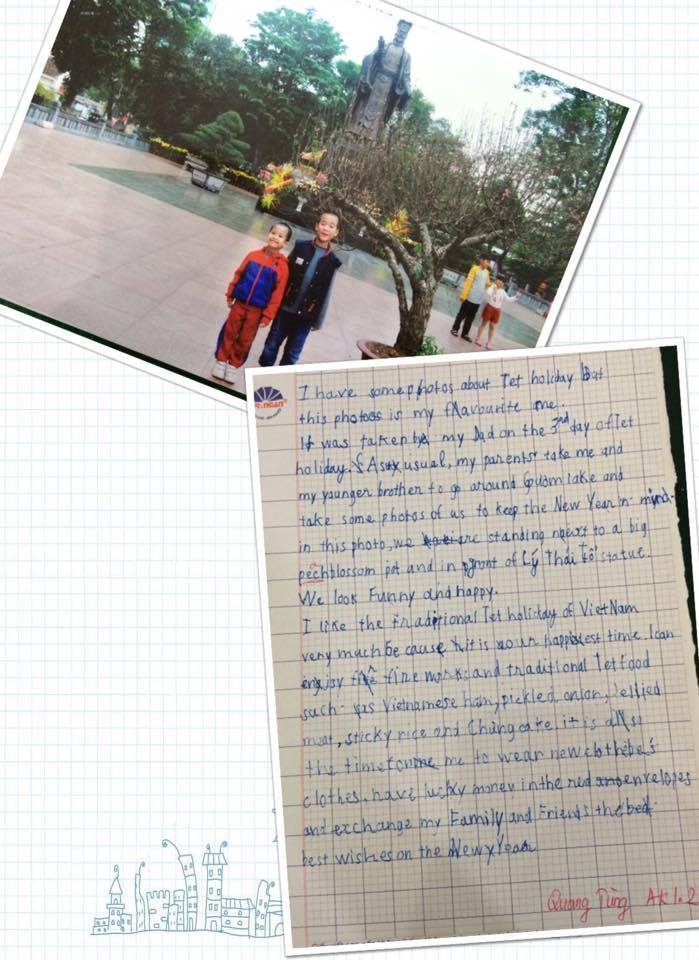 I have some photos about Tet holiday but
this photos is my flavourite one.
It was taken by my Dad on the 3rd day of Tet
holiday. As usual, my parents take me and
my younger brother to go around Guom lake and
take some photos of us to keep the New Year in mind.
in this photo, we are standing next to a big
pechblossom pot and in front of Lý Thái Tổ statue.
We look Funny and happy.
I like the traditional Tet holiday of VietNam
very much be cause it is our happiest time. I can
enjoy fire works and traditional Tet food
such as Vietnamese ham, pickled onion, jellied
meat, sticky rice and Chung cake. it is also
the time for me to wear new
clothes, have lucky money in the red envelopes
and exchange my Family and Friends the
best wishes on the New Year
Quang Tùng AK1.2